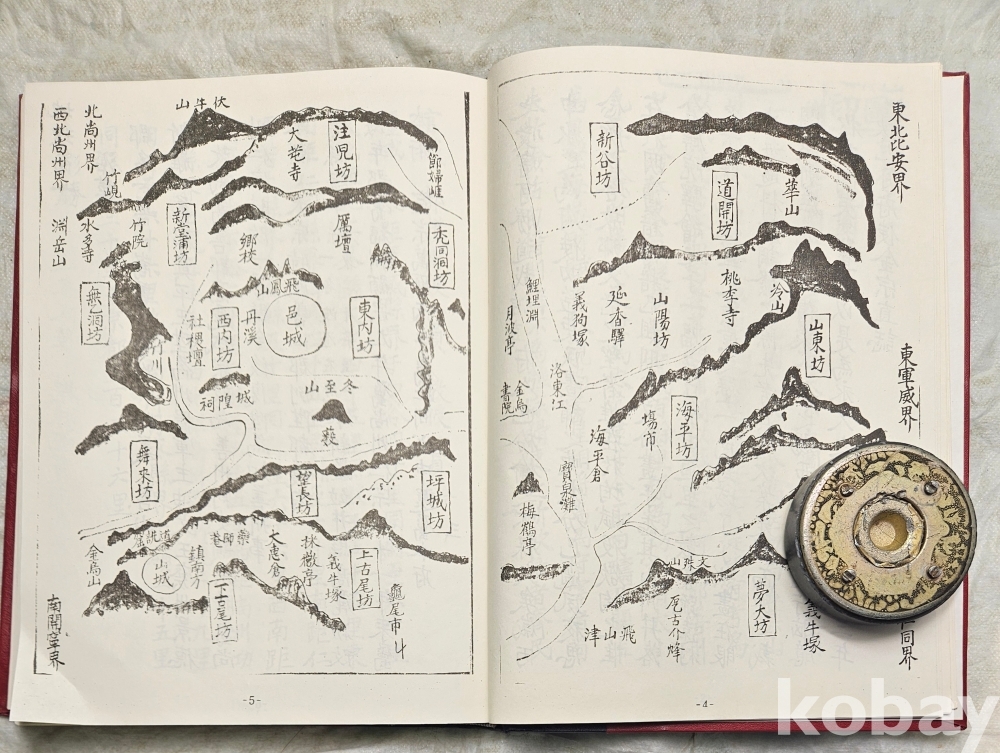 東北比安界
東軍威界
仁同界
新谷坊
道開坊
華山
冷山
桃李寺
山東坊
山陽坊
延香驛
義狗塚
鯉埋淵
月波亭
洛東江
金烏書院
海平坊
場市
海平倉
寶泉灘
梅鶴亭
文殊山
夢大坊
義牛塚
飛山津
-4-
伏牛山
北尚州界
西北尚州界
注児坊
節婦崕
竹峴
竹院
水多寺
淵岳山
新堂浦坊
鄕校
厲壇
禿同洞坊
飛鳳山
邑城
丹溪
西内坊
東内坊
社稷壇
無乙洞坊
城隍祠
冬至山
舞來坊
望長坊
坪城坊
藥師菴
大惠倉
採薇亭
義牛塚
上古尾坊
龜尾市
山城
鎮南方
下古尾坊
金烏山
南開寧界
-5-
kobay